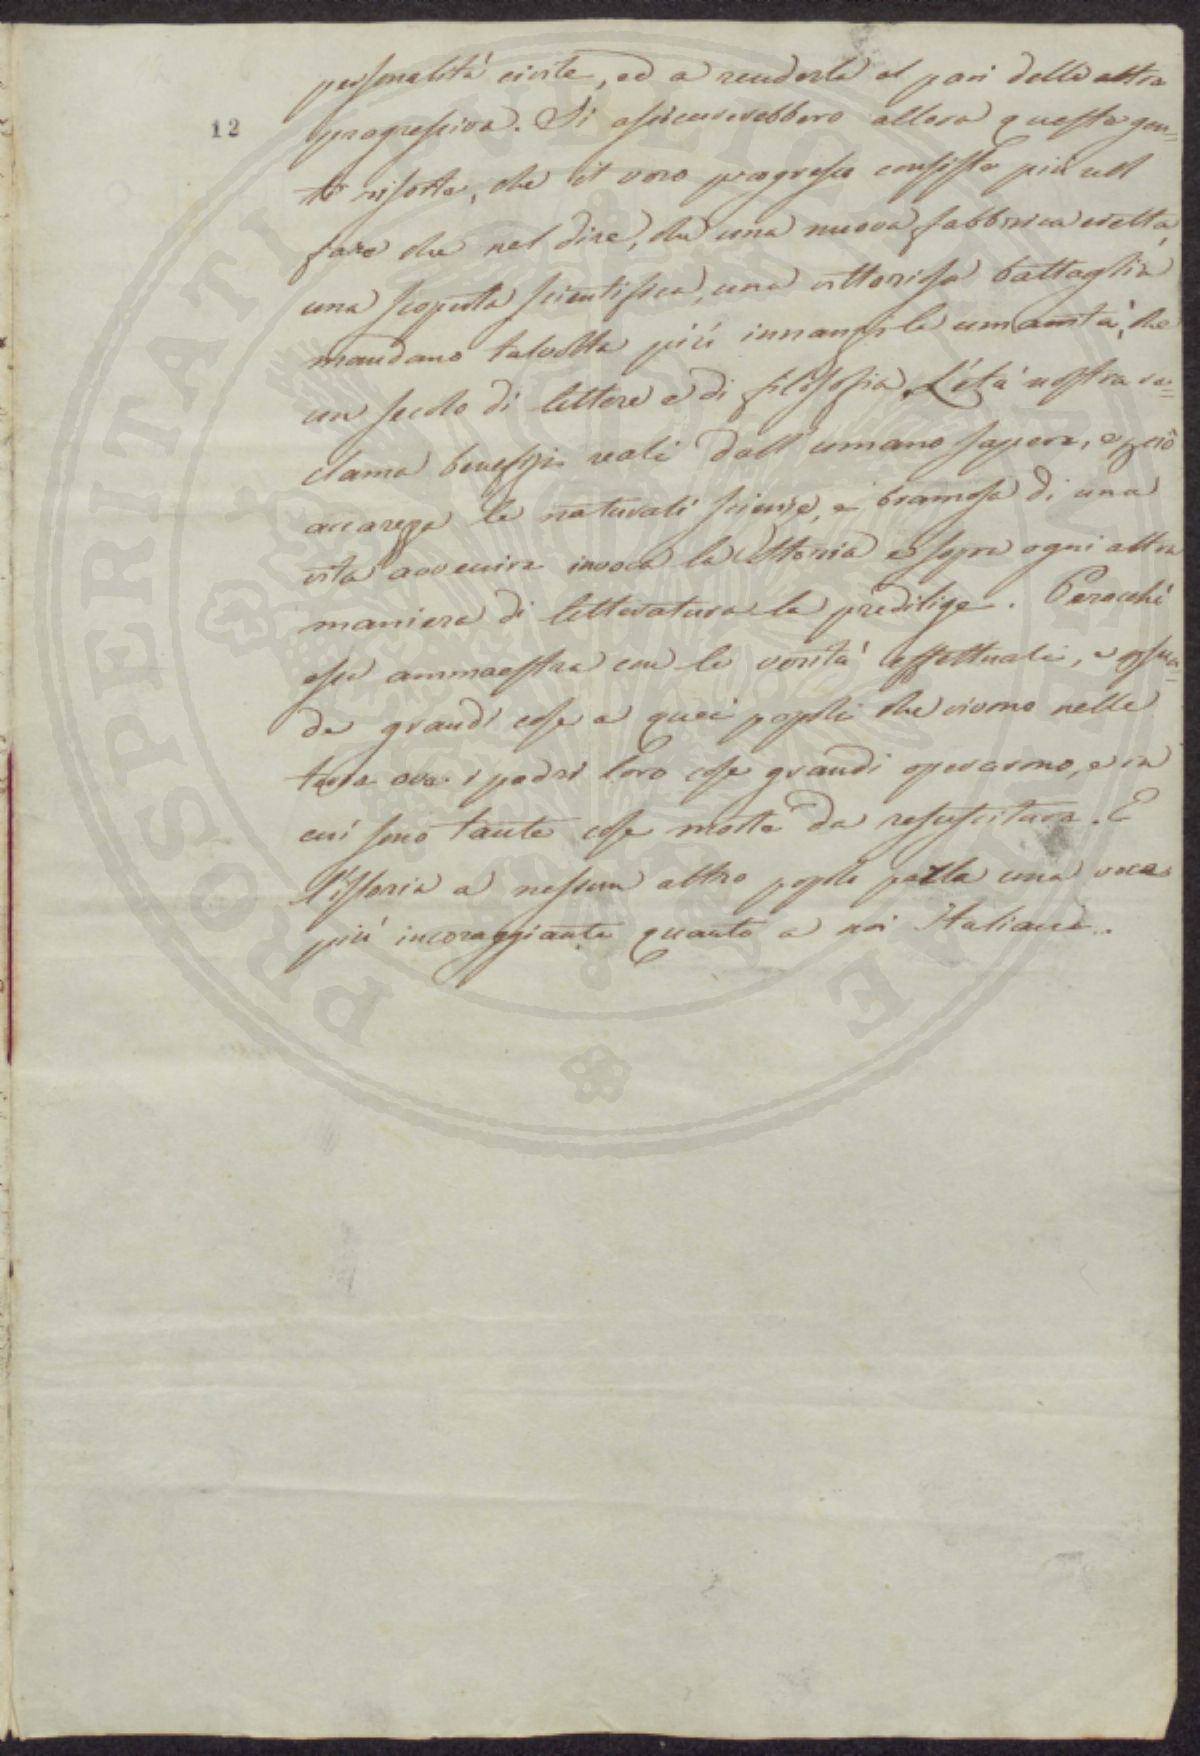 personalità civile, ed a renderla al pari delle altre
12
progressiva. Si assicurerebbero allora queste gen=
ti risorte, che il vero progresso consiste più nel
fare che nel dire, che una nuova fabbrica eretta,
una scoperta scientifica, una vittoriosa battaglia
mandano talvolta più innanzi le umanità, che
un secolo di lettere e di filosofia. L'età nostra re=
clama benefizi reali dall'umano sapere, e perciò
accarezza le naturali scienze, e bramosa di una
vita avvenire invoca la Storia e sopra ogni altra
maniera di letteratura la predilige. Perocchè
essa ammaestra con le verità effettuali, e persua=
de grandi cose a quei popoli che vivono nelle
terre ove i padri loro cose grandi operarono, e in
cui sono tante cose morte da resuscitare. E
l'istoria a nessun altro popolo parla una voce
più incoraggiante quanto a noi Italiani.
PROSPERITATI PUBLICAE